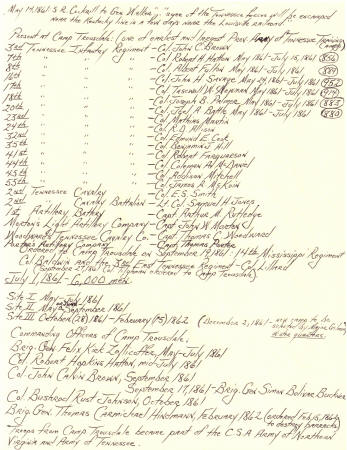 May 14, 1861 S.R. Cockrill to Gen Walker, "again of the Tennessee forces will be encamped
near the Kentucky line in a few days near the Louisville railroad
Present at Camp Trousdale: (one of earliest and largest Tennessee Training Camps)
3rd Tennessee Infantry Regiment - Col. John C. Brown
7th - Col Robert H. Hatton May 1861 - July 15, 1861 (856)
8th - Col Albert Fulton May 1861 - July 1861 (889)
16th - Col. John H. Savage May 1861 - July 1861 (952)
17th - Col. Taswell W. Newman May 1861 - July 1861 (914)
18th - Col Joseph B. Palmer May 1861 - July 1861 (883)
20th - Col. Joel A. Battle May 1861 - July 1861 (880)
23rd - Col. Mathias Martin
24th - Col. R.D. Allison
32nd - Col Edmund C. Cook
35th - Col. Benjamin J. Hill
41st - Col. Robert Farquharson
44th - Col Coleman A. McDaniel
45th - Col. Addison Mitchell
55th - Col. James A. McKoin
2nd Tennessee Cavalry - Col. E.S. Smith
7th Cavalry Battalion - Lt Col Samuel H. Jones
1st Artillery Battery - Capt Arthur M. Rutledge
Morton's Light Artillery Company - Capt John W. Morton
Woodward's Tennessee Cavalry Co. - Capt Thomas C. Woodward
Porter's Artillery Company - Capt. Thomas Porter
Ordered to Camp Trousdale on September 19, 1861: 14th Mississippi Regiment
Col Baldwin and the 3rd East Tennessee Regiment - Col Lillard
(September 27, 1861 ordered to Camp Trousdale)
July 1, 1861 - 6,000 men
Site I May - July 1861
Site II May - September 1861
Site III October (28) 1861 - February (15) 1862 (December 2, 1861, any camp to be
winter quarters
Commanding Officers of Camp Trousdale:
Brig. Gen Felix Kirk Zollicoffer, May - July 1861
Col Robert Hopkins Hatton, mid-July 1861
Col. John Calvin Brown, September 1861
September 17, 1861 - Brig. Gen Simon Bolivar Buckner
Col Bushrod Rust Johnson, October 1861
Brig. Gen. Thomas Carmichael Hindman, February 1862 (ordered Feb, 15, 1862
to destroy barracks)
Troops from Camp Trousdale became part of the C.S.A Army of Northern
Virginia and Army of Tennessee.